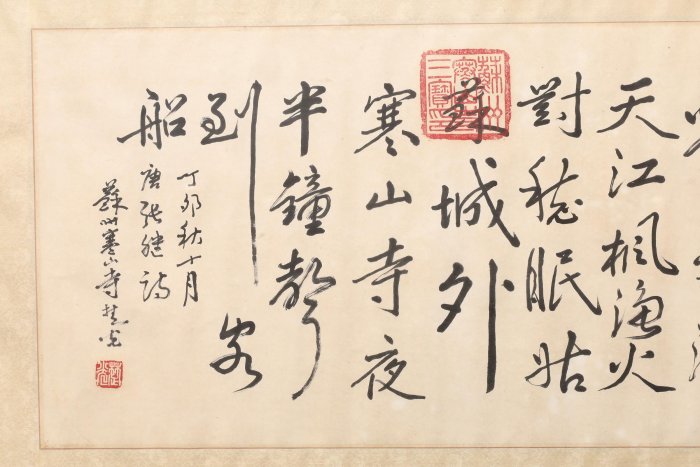 天江楓漁火
對愁眠姑
蘇城外
寒山寺夜
半鐘聲
到客
船
丁卯秋十月
唐張繼詩
蘇州寒山寺楚光